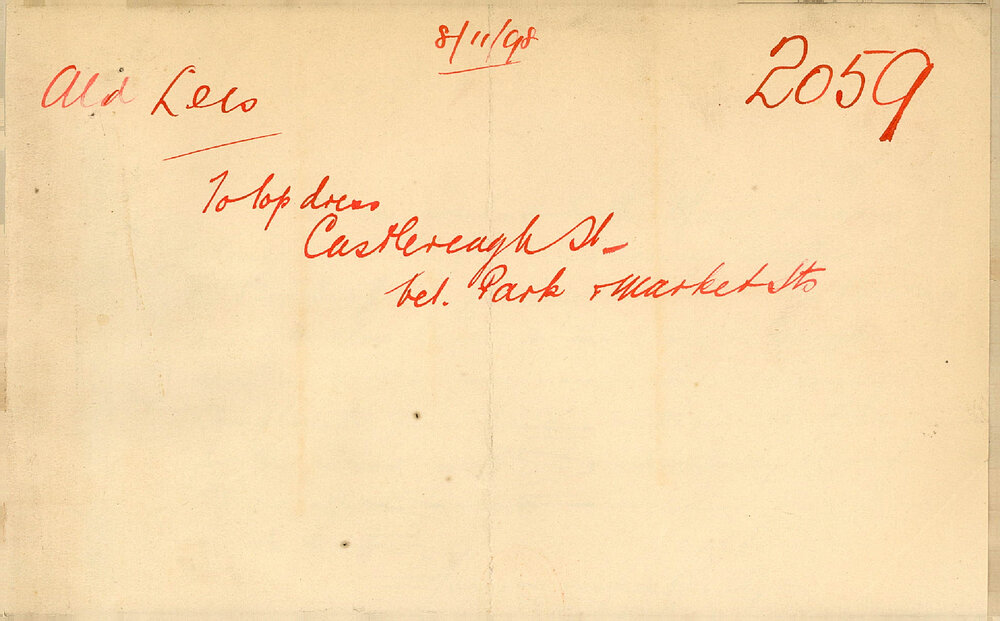 8/11/98
2059
Ald Lees
To top dress
Castlereagh St
bet. Park & Market Sts